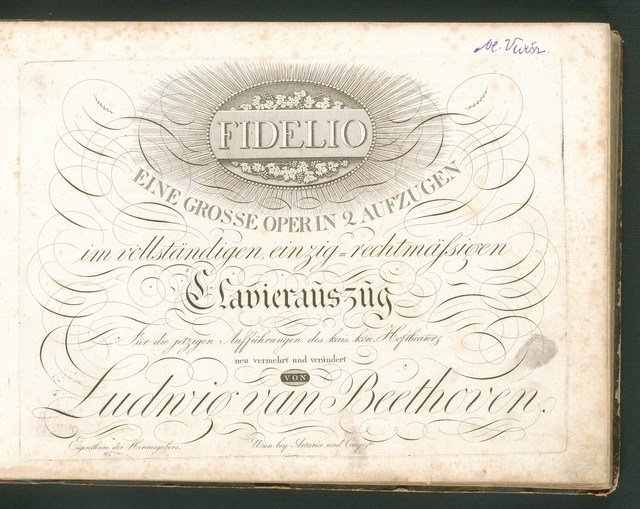 FIDELIO
EINE GROSSE OPER IN 2 AUFZUGEN
im vollständigen, einzig=rechtmäſsigen
Clavierauszug
Für die jetzigen Aufführungen des kais. kön. Hoftheaters
neu vermehrt und verändert
VON
Ludwig van Beethoven.
Eigenthum des Herausgebers.
Wien bey Artaria und Comp.